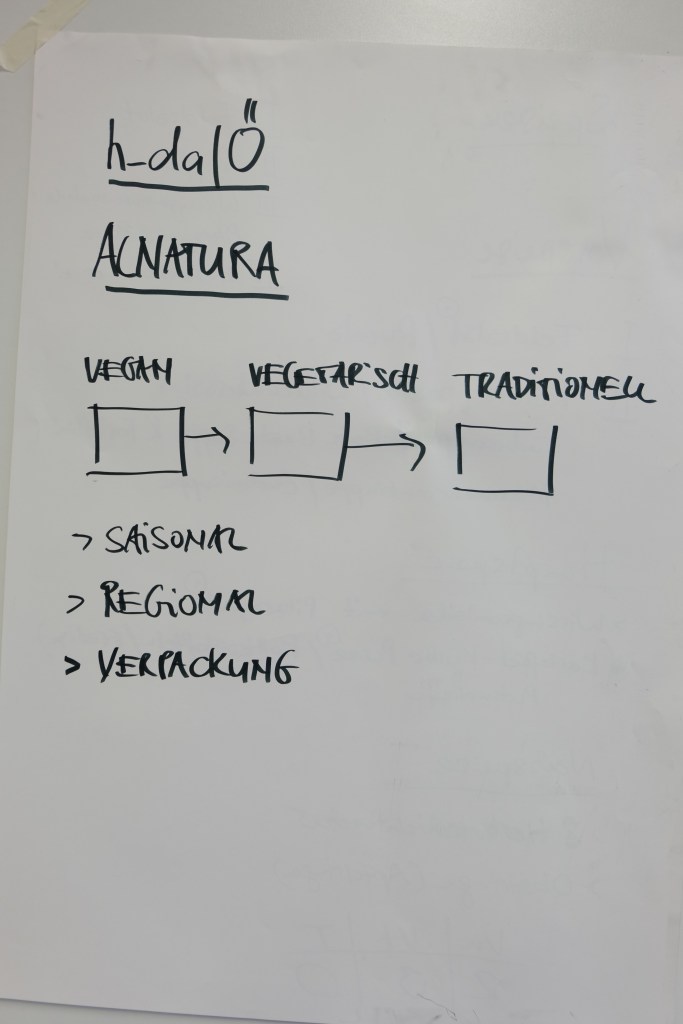 h_da|Ö
ALNATURA
VEGAN VEGETARiSCH TRADiTiONELL
> SAiSONAL
> REGiONAL
> VERPACKUNG